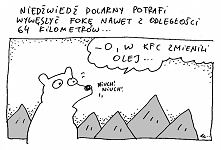 NIEDŹWIEDŹ POLARNY POTRAFI
WYWĘSZYĆ FOKĘ NAWET Z ODLEGŁOŚCI
64 KILOMETRÓW...
- O, W KFC ZMIENILI
OLEJ...
NIUCH!
NIUCH!